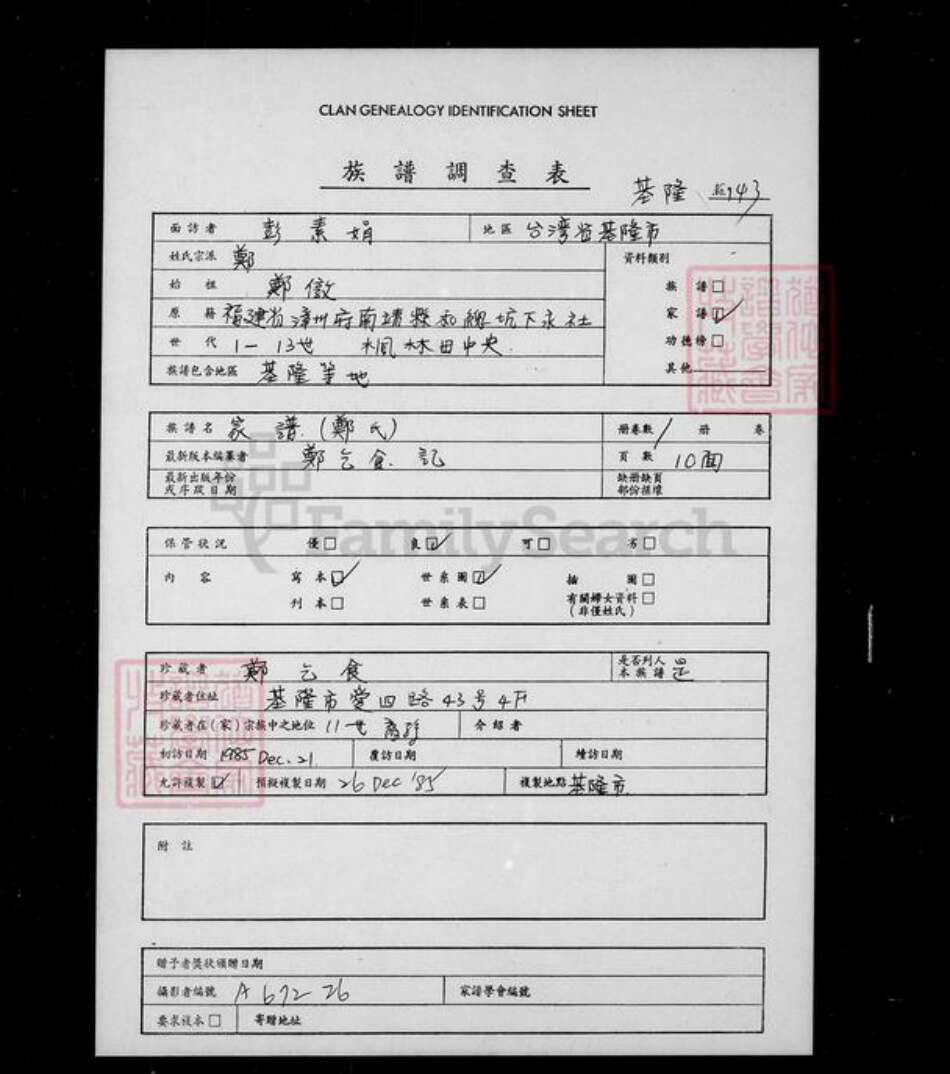 CLAN GENEALOGY IDENTIFICATION SHEET
族譜調查表
基隆 43
面訪者 彭素娟 地區 台湾省基隆市
姓氏宗派 鄭 資料類別
始祖 鄭儆 族譜□
原籍 福建省漳州府南靖縣和線坑下永社 家譜☑
世代 1-13世 楓林田中央 功德榜□
族譜包含地區 基隆等地 其他
族譜名 家譜.(鄭氏) 册卷數 1 册 卷
最新版本編纂者 鄭乞食.記 頁數 10面
最新出版年份 缺册缺頁
或序跋日期 部份損壞
FamilySearch
保管狀況 優□ 良☑ 可□ 劣□
內容 寫本☑ 世系圖☑ 插圖□
刊本□ 世系表□ 有關婦女資料□
(非僅姓氏)
珍藏者 鄭乞食 是否列入本族譜 是
珍藏者住址 基隆市愛四路43号4F
珍藏者在(家)宗族中之地位 11世裔孫 介紹者
初訪日期 1985 Dec. 21 覆訪日期 續訪日期
允許複製☑ 預擬複製日期 26 Dec '85 複製地點 基隆市
附註
贈予者獎狀頒贈日期
攝影者編號 A 672-26 家譜學會編號
要求複本□ 寄贈地址